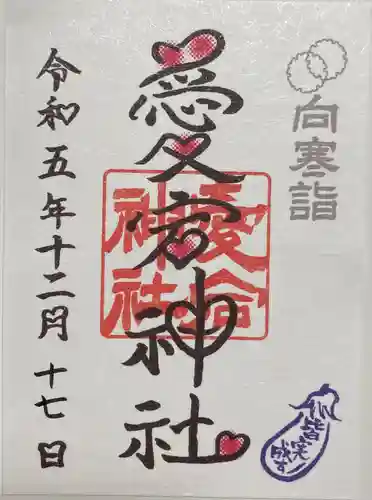 向寒詣
皆実
成す
愛宕神社
愛宕
神社
令和五年十二月十七日